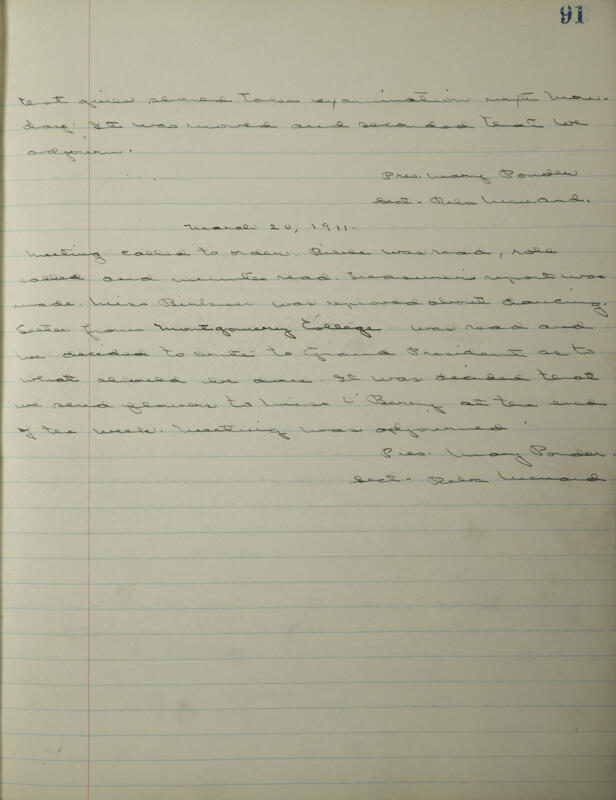 91
that girls should take examination next Mon-
day. It was moved and seconded that we
adjourn.
Pres. Mary Ponder
Sect. Reba Menard.
March 20, 1911.
Meeting called to order. Bible was read, roll
called and minutes read. Treasurer's report was
made. Miss was reproved about dancing.
Letter from Montgomery College was read and
we decided to write to Grand President as to
what should be done. It was decided that
we send flowers to Miss O'Berry at the end
of the week. Meeting was adjourned
Pres. Mary Ponder.
Sect. Reba Menard